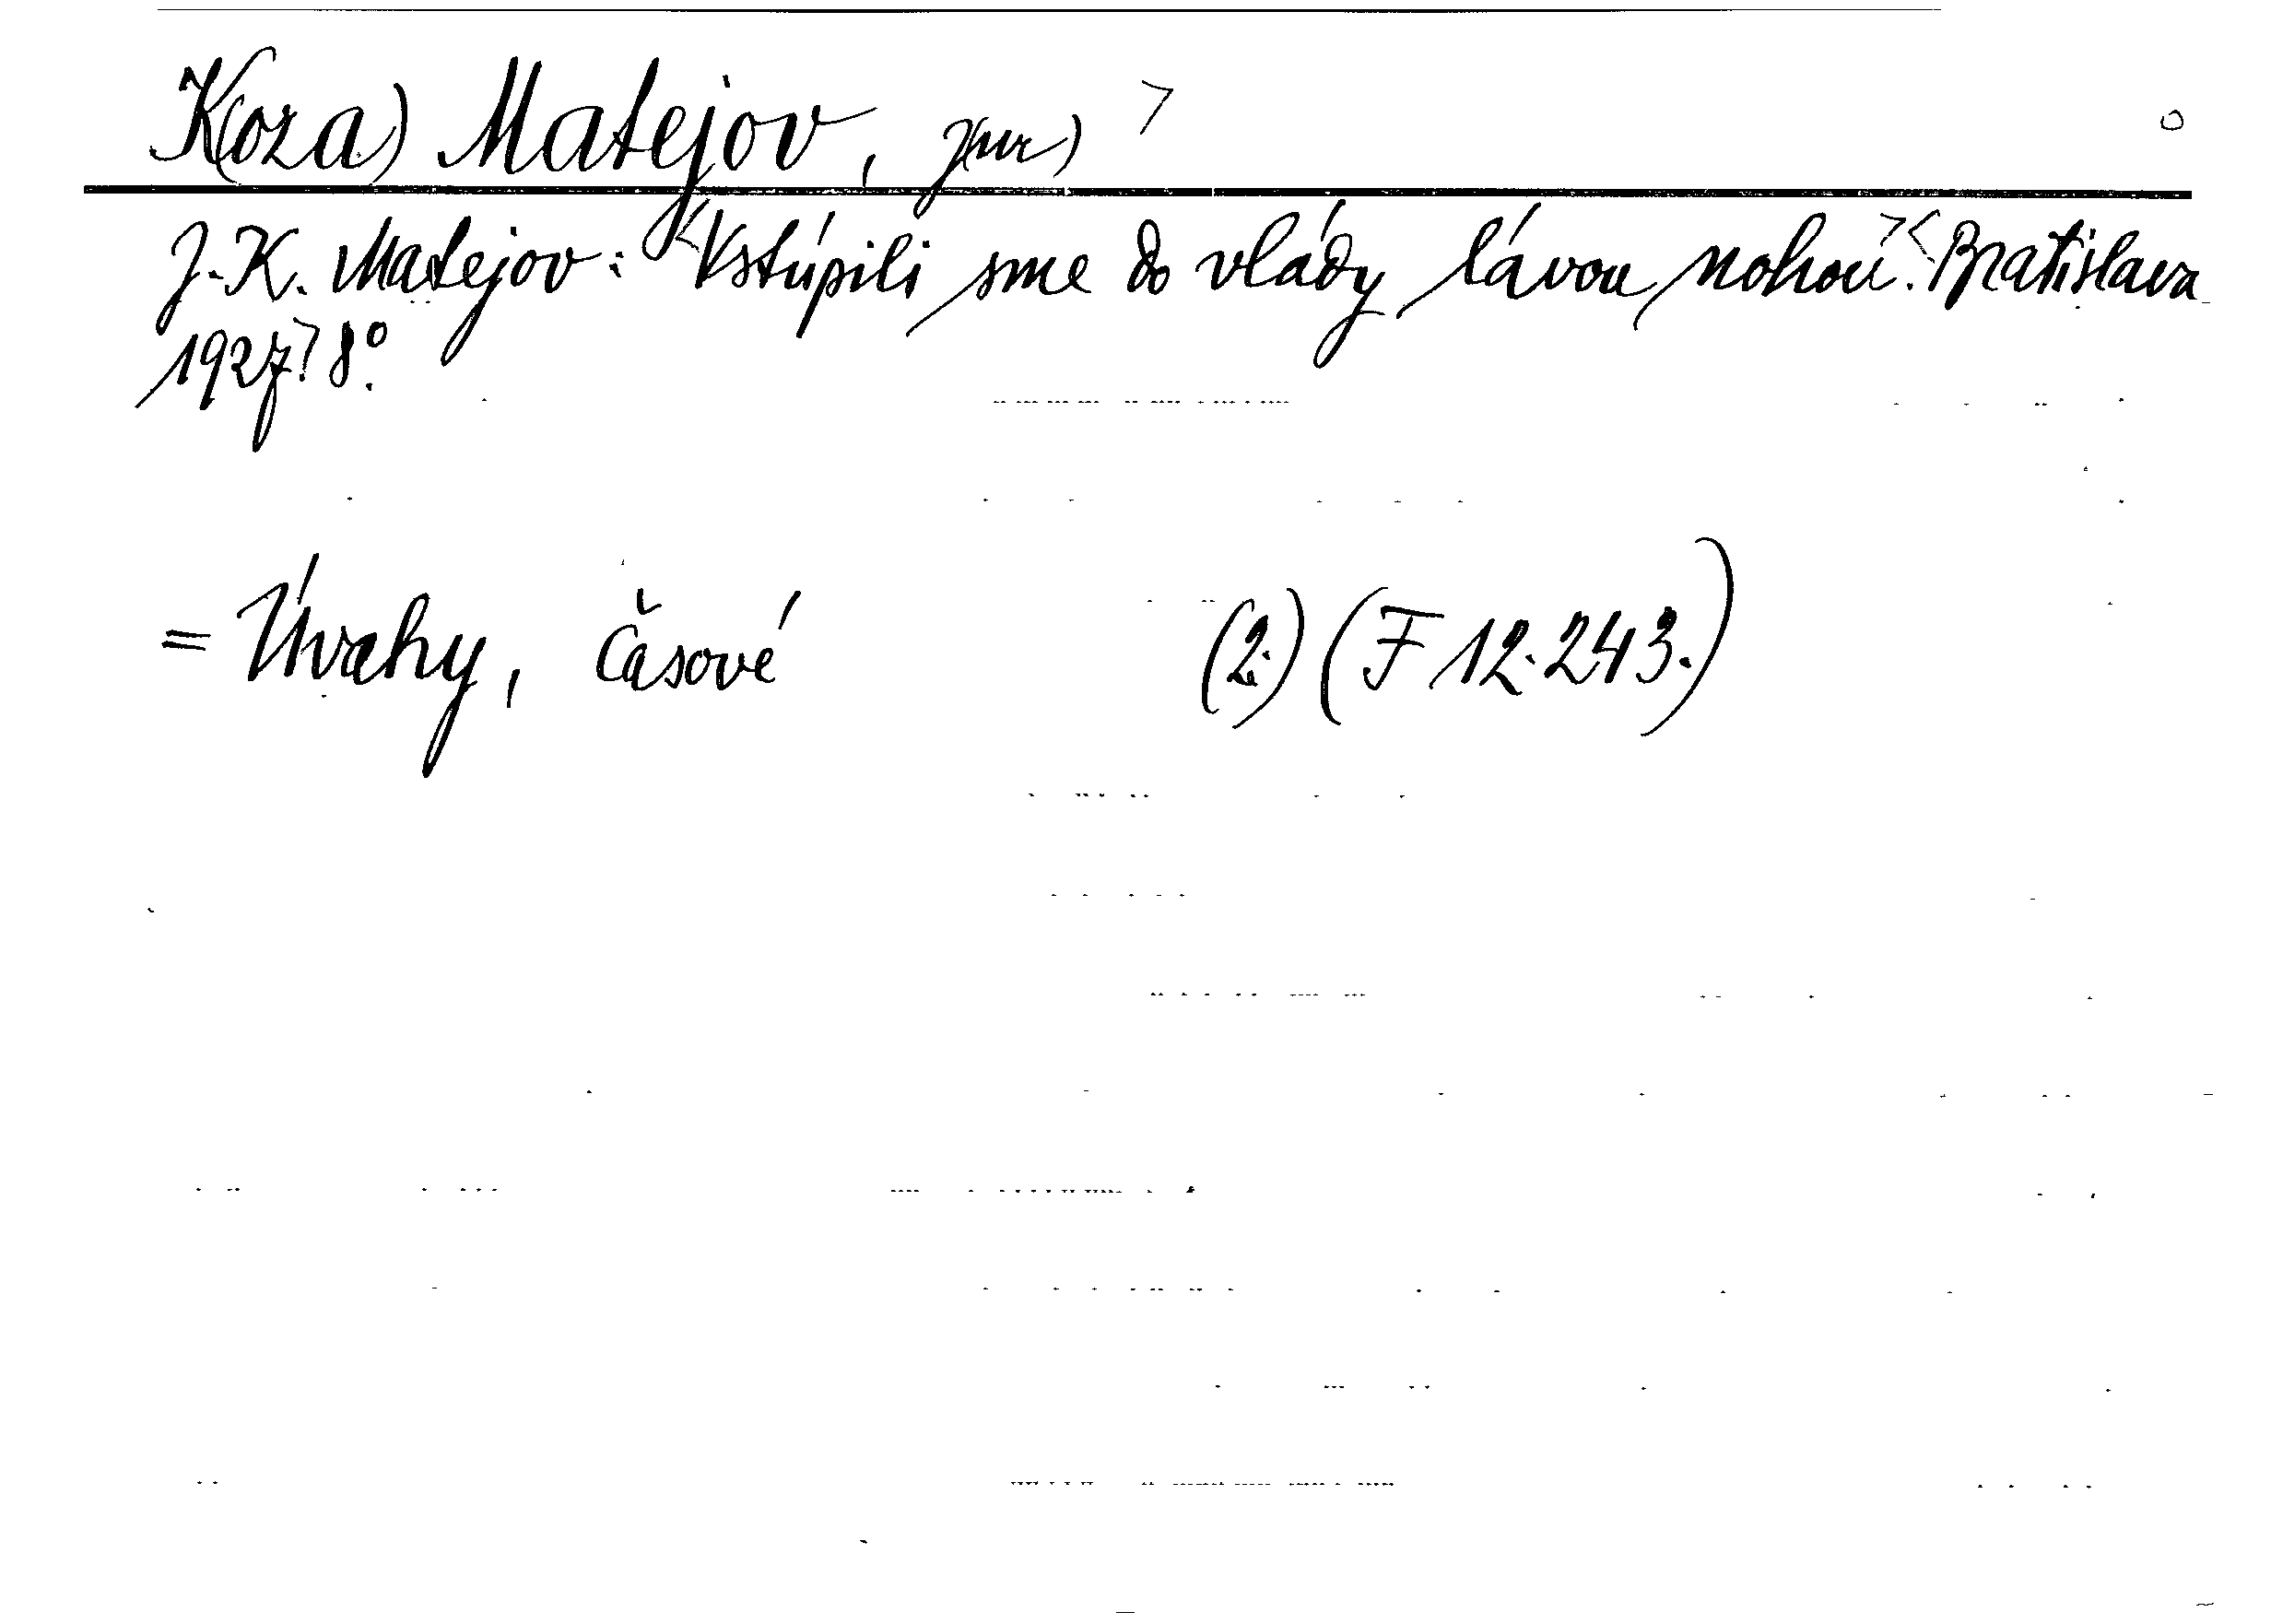 K(oza) Matejov, J(ur)>
J. K. Matejov: <Vstúpili sme do vlády lávou nohou>. <Bratislava
1927>. 8°.
= Úvahy, časové (2.) (F 12.243.)